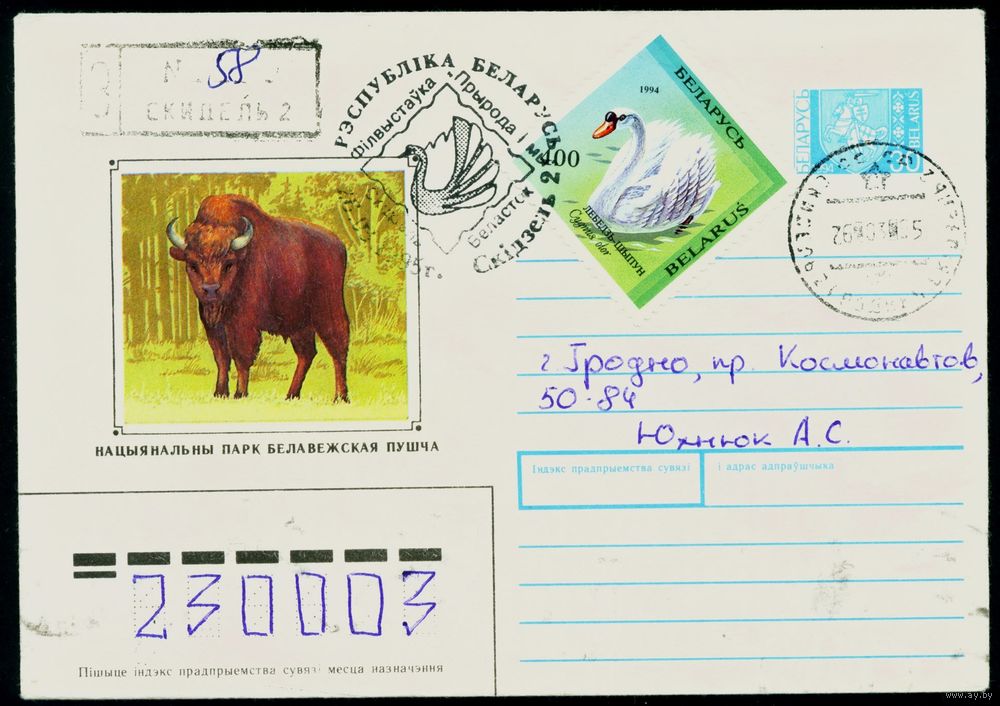 N 58
СКИДЕЛЬ 2
РЭСПУБЛІКА БЕЛАРУСЬ
Філвыстаўка „Прырода і мы“
Беласток
Скідзель 2
1994
БЕЛАРУСЬ
400
ЛЕБЕДЗЬ-ШЫПУН
Cygnus olor
BELARUS
БЕЛАРУСЬ
BELARUS
НАЦЫЯНАЛЬНЫ ПАРК БЕЛАВЕЖСКАЯ ПУШЧА
г Гродно, пр. Космонавтов,
50-84
Юхнюк А.С.
Індэкс прадпрыемства сувязі
і адрас адпраўшчыка
230003
Пішыце індэкс прадпрыемства сувязі месца назначэння
www.ay.by